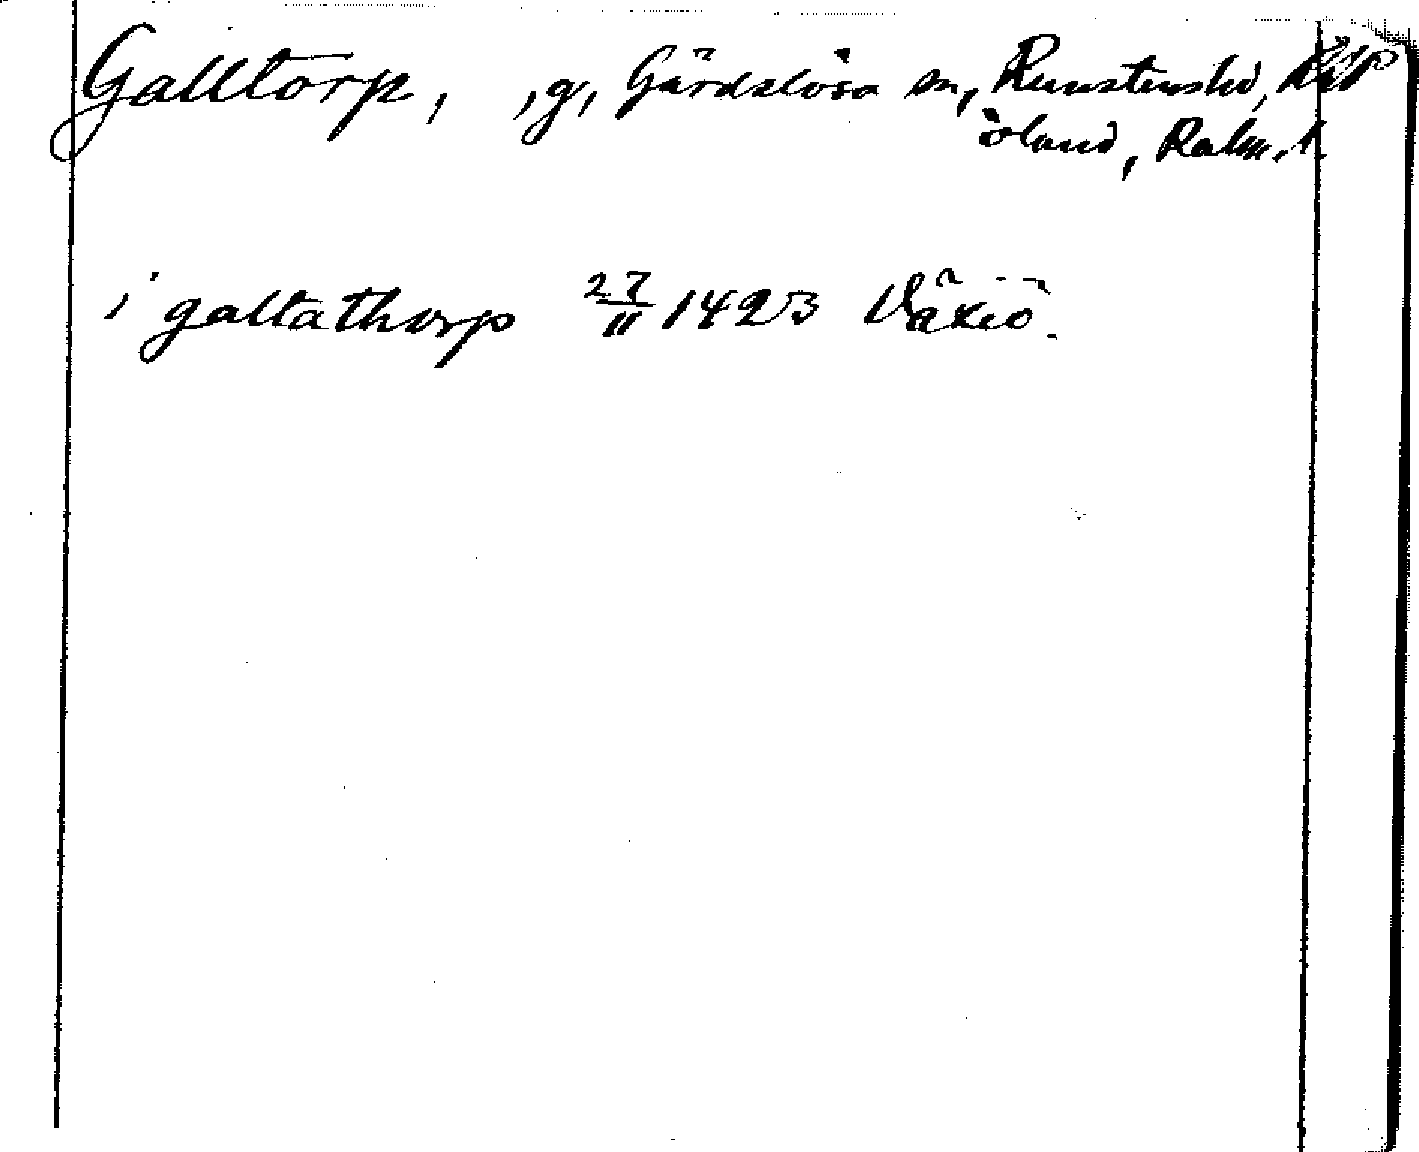 Galltorp, ,g, Gärdslösa sn, Runstens hd,
Öland, Kalm. l.
i galtathorp 27/11 1423 Växiö.